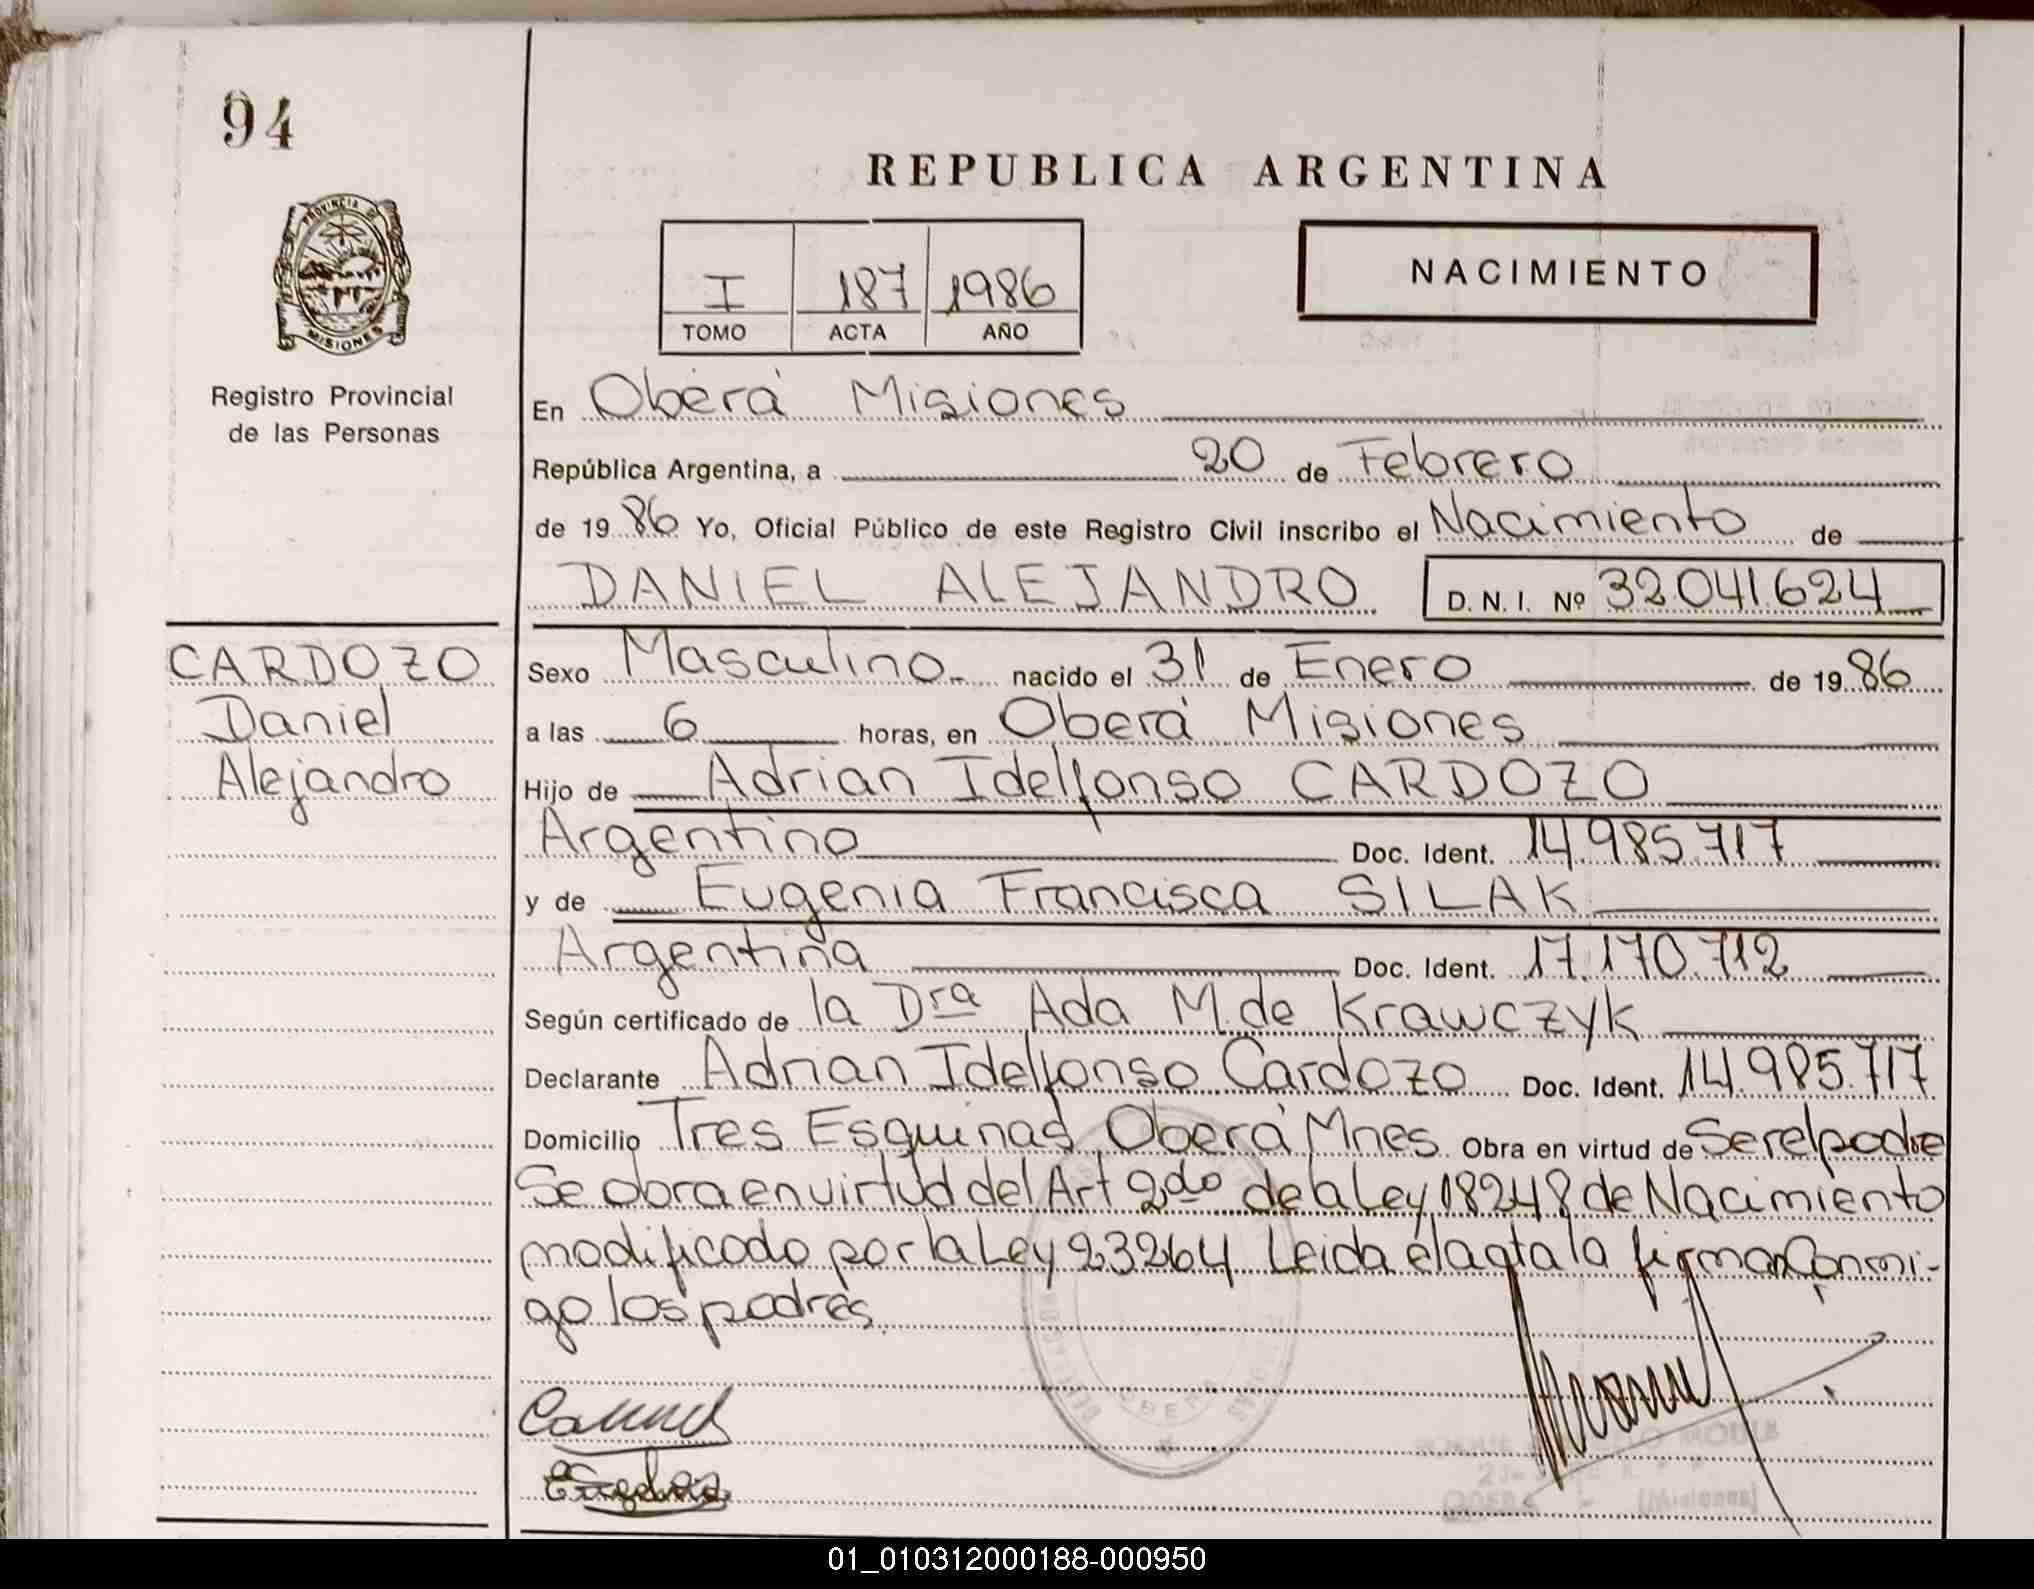 94
REPUBLICA ARGENTINA
PROVINCIA DE
MISIONES
I 187 1986
TOMO ACTA AÑO
NACIMIENTO
Registro Provincial
de las Personas
En Oberá Misiones
República Argentina, a 20 de Febrero
de 1986 Yo, Oficial Público de este Registro Civil inscribo el Nacimiento de
DANIEL ALEJANDRO D. N. I. Nº 32041624
CARDOZO
Daniel
Alejandro
Sexo Masculino nacido el 31 de Enero de 1986
a las 6 horas, en Oberá Misiones
Hijo de Adrian Idelfonso CARDOZO
Argentino Doc. Ident. 14.985.717
y de Eugenia Francisca SILAK
Argentina Doc. Ident. 17.170.712
Según certificado de la Dra Ada M. de Krawczyk
Declarante Adrian Idelfonso Cardozo Doc. Ident. 14.985.717
Domicilio Tres Esquinas Oberá Mnes. Obra en virtud de Ser el padre
Se obra en virtud del Art 2do de la Ley 18248 de Nacimiento
modificado por la Ley 23264 Leida el acta la firman Conmi-
go los padres.
01_010312000188-000950